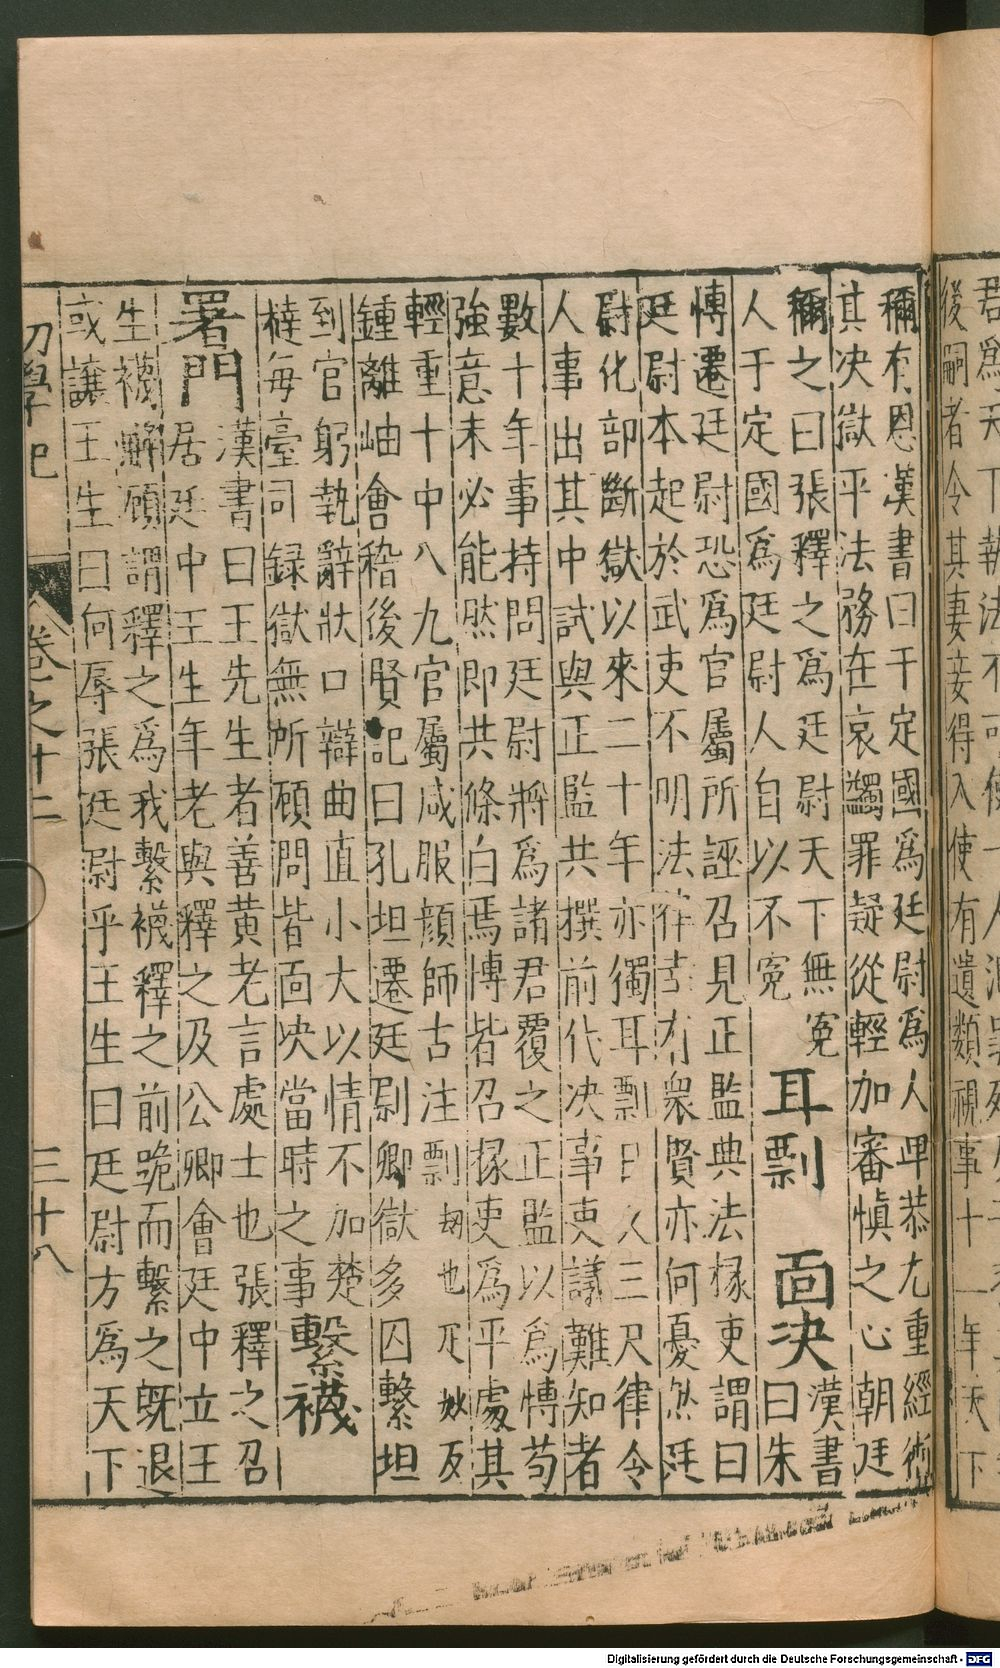 君爲天下執法不可使一人
後嗣者令其妻妾得入使有遺類視事十一年天下
稱有恩漢書曰于定國爲廷尉爲人𤰞恭尤重經術
其决獄平法務在哀鰥罪疑從輕加審慎之心朝廷
稱之曰張釋之爲廷尉天下無寃
人于定國爲廷尉人自以不寃
耳剽 面决
漢書
曰朱
愽遷廷尉恐爲官屬所誣召見正監典法掾吏謂曰
廷尉本起於武吏不明法律幸有衆賢亦何憂然廷
尉化部斷獄以來二十年亦獨耳剽日久三尺律令
人事出其中試與正監共撰前代决事吏議難知者
數十年事持問廷尉將爲諸君覆之正監以爲愽苟
強意未必能然即共條白焉愽皆召掾吏爲平處其
輕重十中八九官屬咸服顔師古注剽劫也疋妙反
鍾離岫會稽後賢記曰孔坦遷廷尉卿獄多囚繫坦
到官躬執辭狀口辯曲直小大以情不加楚
撻每臺司録獄無所顧問皆面决當時之事
繫襪
署門
漢書曰王先生者善黄老言處士也張釋之召
居廷中王生年老與釋之及公卿會廷中立王
生襪解顧謂釋之爲我繫襪釋之前跪而繫之旣退
或讓王生曰何辱張廷尉乎王生曰廷尉方爲天下
初學記 卷之十二 三十八
Digitalisierung gefördert durch die Deutsche Forschungsgemeinschaft - DFG